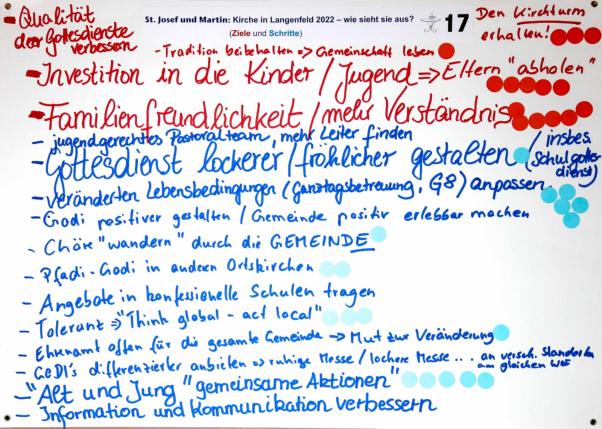 - Qualität der Gottesdienste verbessern
St. Josef und Martin: Kirche in Langenfeld 2022 – wie sieht sie aus?
(Ziele und Schritte)
17
Den Kirchturm
erhalten!
- Tradition beibehalten => Gemeinschaft leben
- Investition in die Kinder / Jugend => Eltern "abholen"
- Familienfreundlichkeit / mehr Verständnis
- jugendgerechtes Pastoralteam, mehr Leiter finden
- Gottesdienst lockerer / fröhlicher gestalten / insbes. Schulgottesdienst)
- veränderten Lebensbedingungen (Ganztagsbetreuung, G8) anpassen.
- Godi positiver gestalten / Gemeinde positiv erlebbar machen
- Chöre "wandern" durch die GEMEINDE
- Pfadi-Godi in andern Ortskirchen
- Angebote in konfessionelle Schulen tragen
- Toleranz => "Think global - act local"
- Ehrenamt offen für die gesamte Gemeinde -> Mut zur Veränderung
- GeDi's differenzierter anbieten => ruhige Messe / lockere Messe .. an versch. Standorten am gleichen WE
- "Alt und Jung "gemeinsame Aktionen"
- Information und Kommunikation verbessern